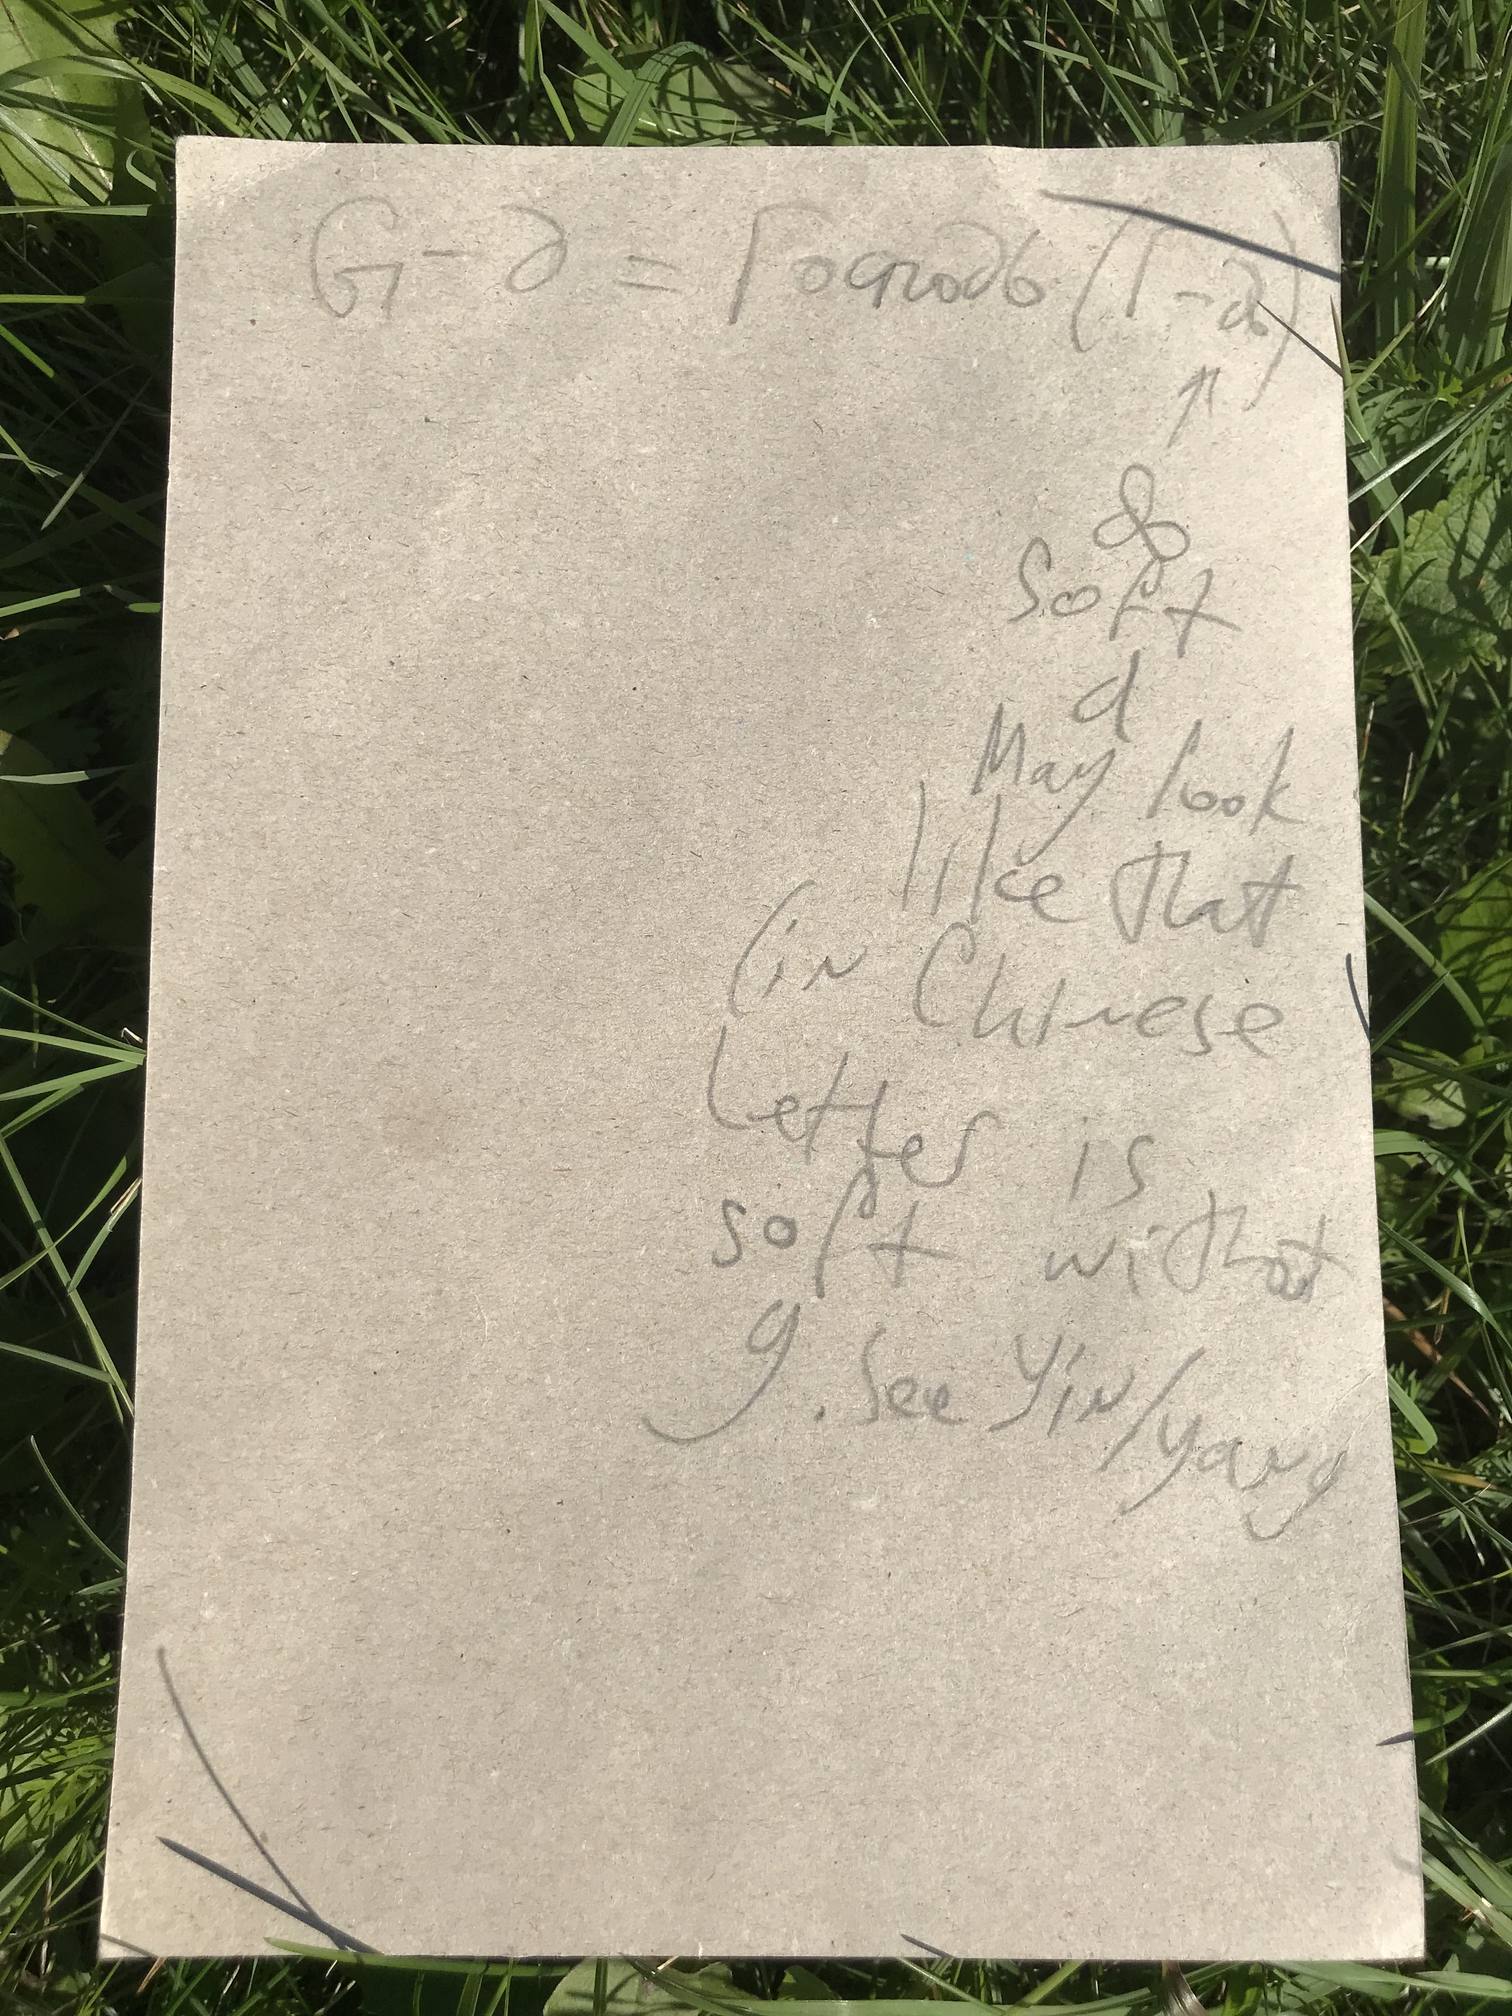 G-д = Господь (Г-дь)
soft
d
May look
like that
(in Chinese
letter is
soft without
g. See Yin/yang